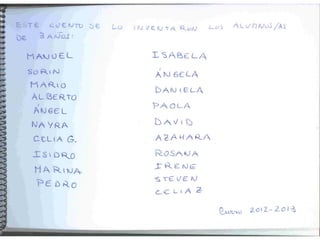 ESTE CUENTO SE LO INVENTARON LOS ALUMNOS/AS
DE 3 AÑOS:
MANUEL
SORIN
MARIO
ALBERTO
ÁNGEL
NAYRA
CELIA G.
ISIDRO
MARINA
PEDRO
ISABELA
ÁNGELA
DANIELA
PAOLA
DAVID
AZAHARA
ROSANA
IRENE
STEVEN
CELIA Z
CURSO 2012-2013